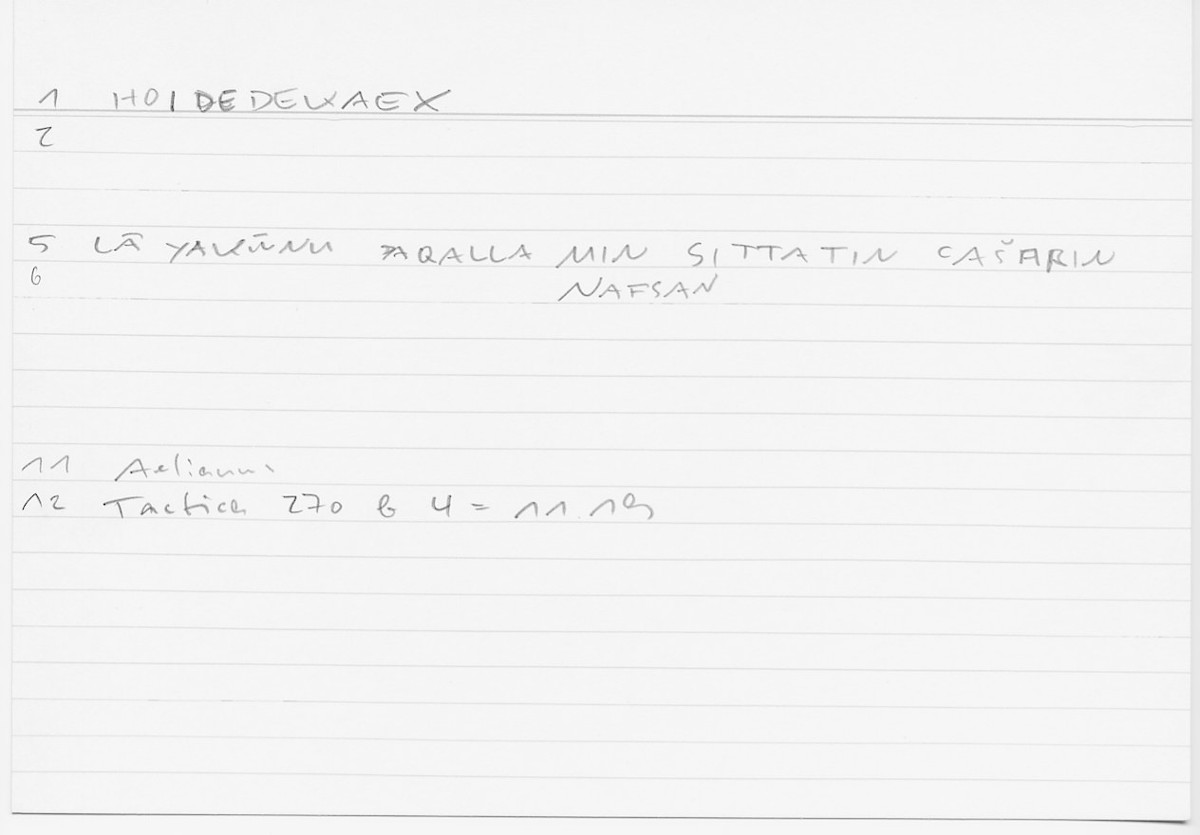 1 HOI DEDEKAEX
2
5 LĀ YAKŪNU AQALLA MIN SITTATIN CAŠARIN
6 NAFSAN
11 Aelianus
12 Tactica 270 b 4 = 11.19